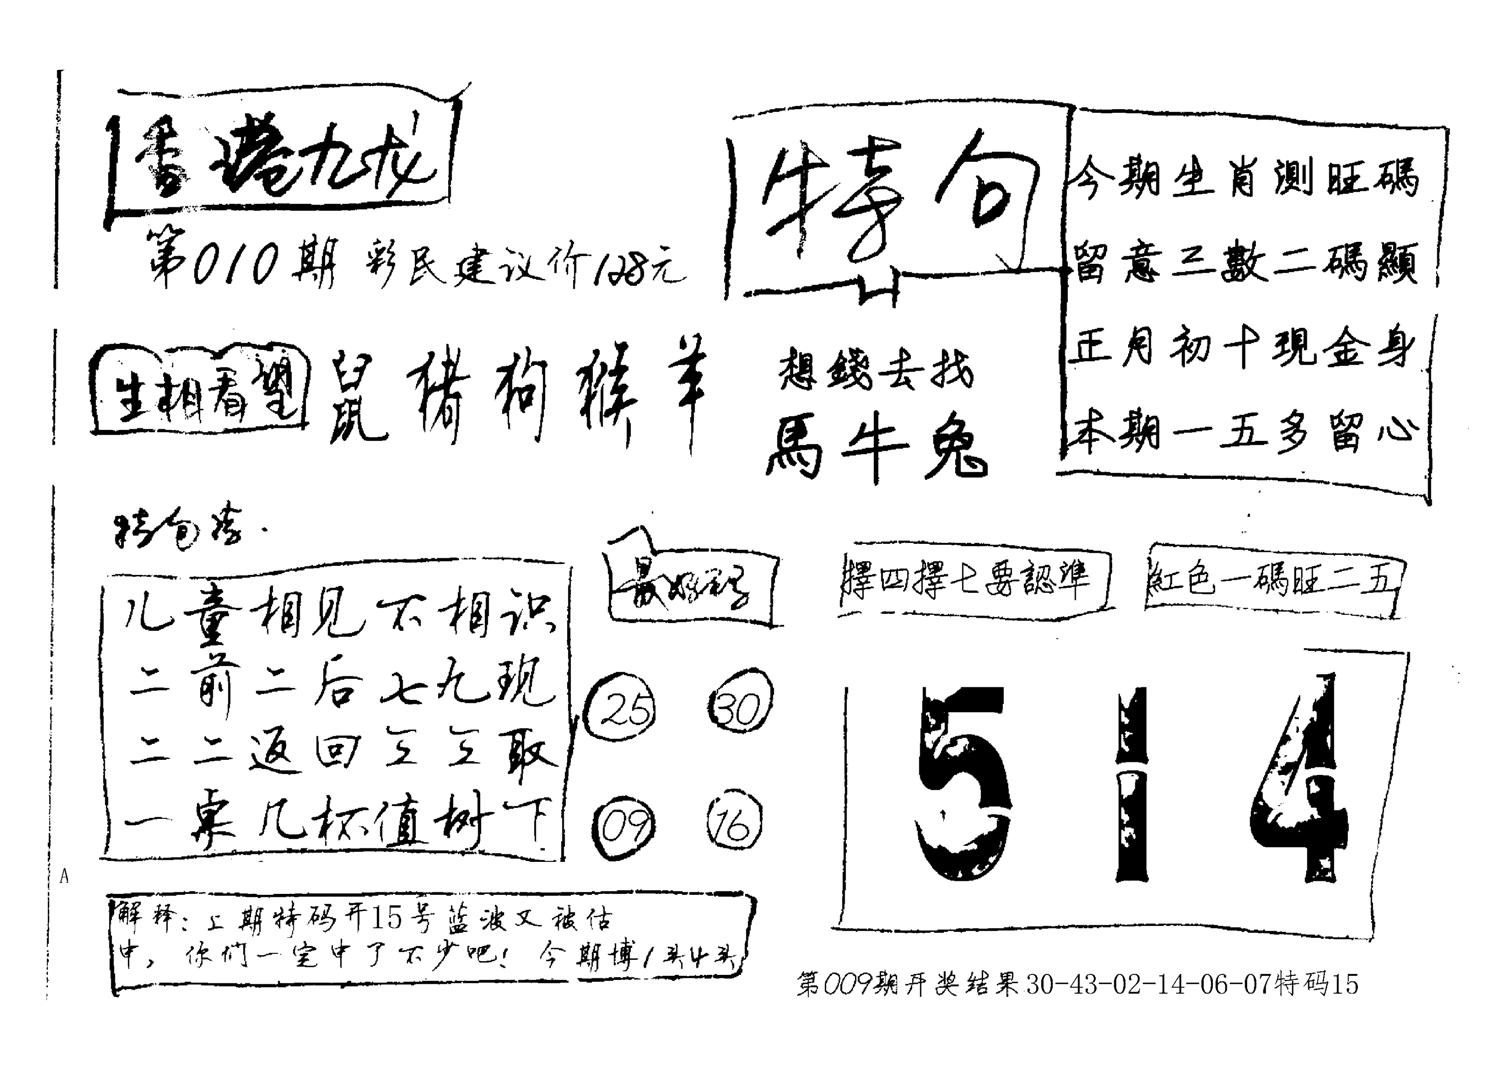 香港九龙
第010期 彩民建议价128元
特句
今期生肖測旺碼
留意三數二碼顯
正月初十現金身
本期一五多留心
生相看望
鼠猪狗猴羊
想錢去找
馬牛兔
特句诗.
儿童相见不相识
二前二后七九现
二二返回三三取
一桌几杯值树下
最好码
25 30
09 16
擇四擇七要認準
紅色一碼旺二五
514
A
解释:上期特码开15号蓝波又被估
中,你们一定中了不少吧!今期博1头4头
第009期开奖结果30-43-02-14-06-07特码15